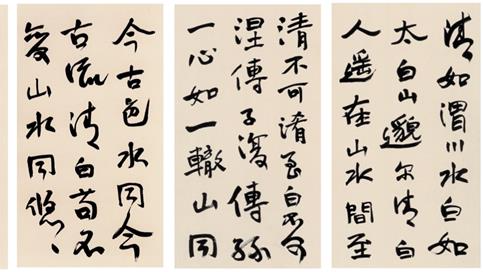 清如渭川水白如
太白山邈尔清白
人遥在山水間至
清不可淆至白不可
涅傳子復傳孫
一心如一轍山同
今古色水同今
古流清白苟不
變山水同悠々